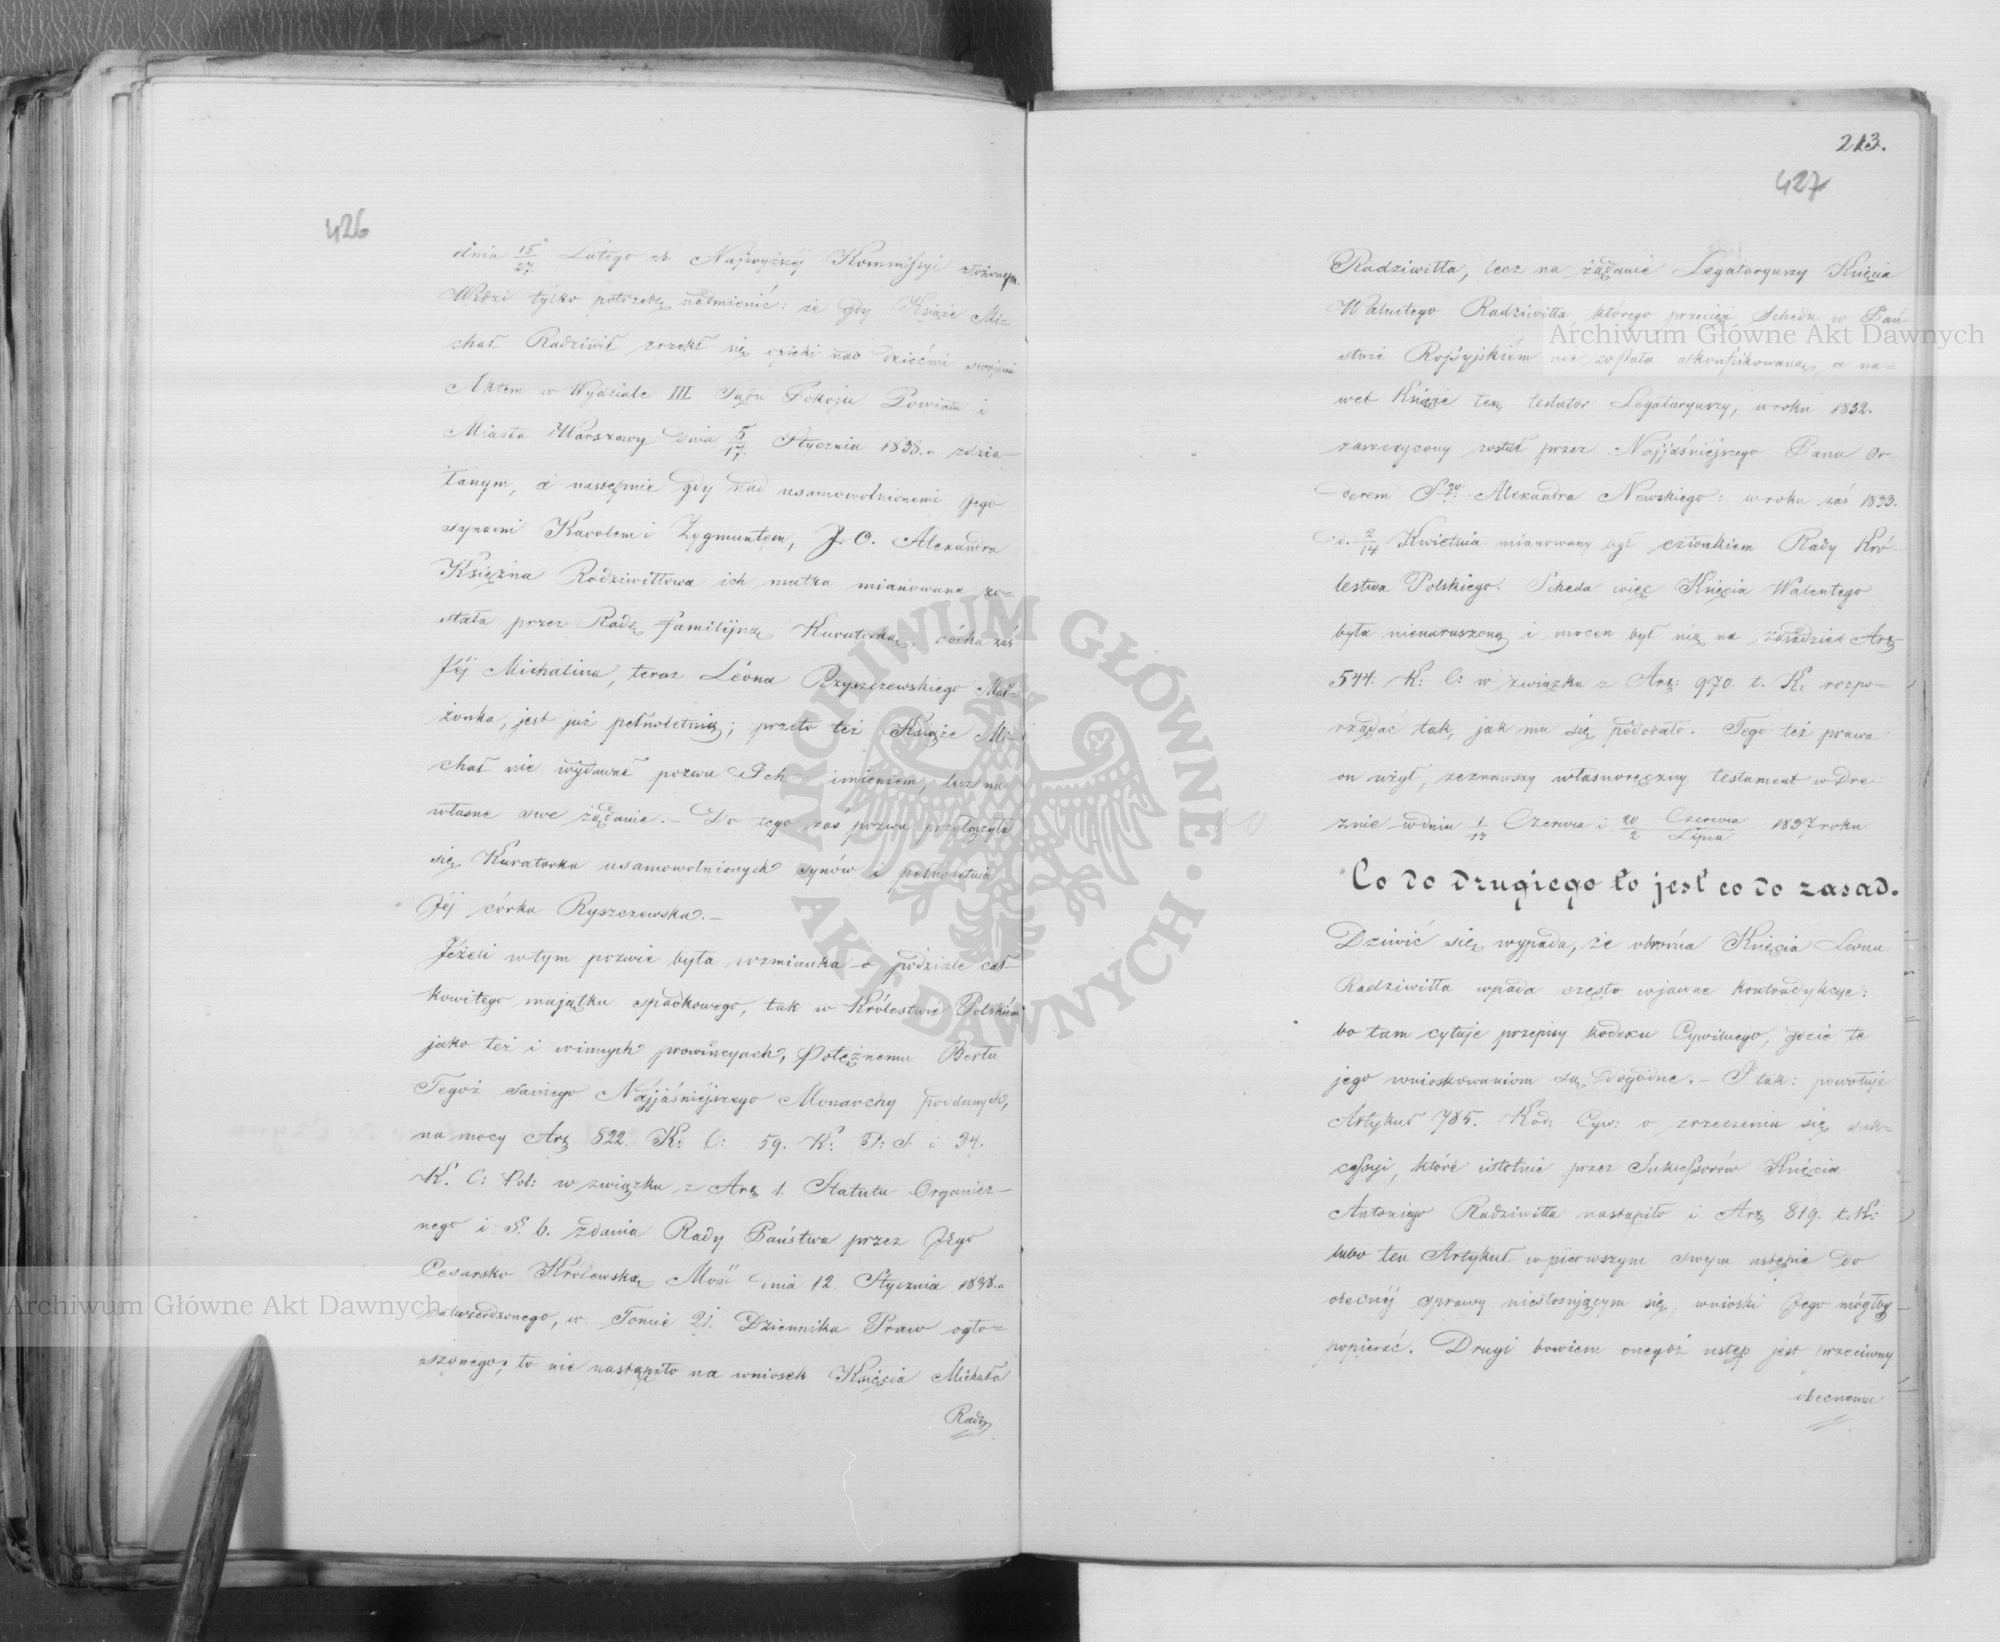 426
dnia 15/27 Lutego rb. Najwyższéj Kommissyi złożonym.
Widzi tylko potrzebę nadmienić: że gdy Książe Mi-
chał Radziwił zrzekł się opieki nad dziećmi swojemi
Aktem w Wydziale III Sądu Pokoju Powiatu i
Miasta Warszawy dnia 5/17 Stycznia 1838.r. zdzia-
łanym, a następnie gdy nad usamowolnionemi Jego
synami Karolem i Zygmuntem, J. O. Alexandra
Księżna Radziwiłłowa ich matka mianowana zo-
stała przez Radę familijną Kuratorką, córka zaś
Jéj Michalina, teraz Leona Rzyszczewskiego Mał-
żonka, jest już pełnoletnią; przeto też Książe Mi-
chał nie wydawał pozwu Ich imieniem, lecz na
własne swe żądanie. – Do tego zaś pozwu przyłączyła
się Kuratorka usamowolnionych synów i pełnoletnia
Jéj córka Ryszczewska. –
Jeżeli w tym pozwie była wzmianka o podziale cał-
kowitego majątku spadkowego, tak w Królestwie Polskiém
jako też i w innych prowincyach, Potężnemu Berłu
Tegoż samego Najjaśniejszego Monarchy poddanych,
na mocy Art 822. K: C: 59. K: P: S. i 34.
K. C: Pol: w związku z Art 1. Statutu Organicz-
nego i §. 6. Zdania Rady Państwa przez Jego
Cesarsko Królewską Mość dnia 12. Stycznia 1838.r.
zatwierdzonego, w Tomie 21. Dziennika Praw ogło-
szonego, to nie nastąpiło na wniosek Księcia Michała
Radz
213.
427
Radziwiłła, lecz na żądanie Legataryuszy Księcia
Walentego Radziwiłła, którego przecież Scheda w Pań-
stwie Rossyjskiém nie została skonfiskowaną, a na-
wet Książe ten, testator Legataryuszy, w roku 1832.
zaszczycony został przez Najjaśniejszego Pana Or-
derem Sgo Alexandra Newskiego: w roku zaś 1833.
d. 2/14 Kwietnia mianowany był członkiem Rady Kró-
lestwa Polskiego. Scheda więc Księcia Walentego
była nienaruszoną i mocen był nią na zasadzie Art
544. K: C: w związku z Art: 970. t. K: rozpo-
rządzać tak, jak mu się podobało. Tego też prawa
on użył, zeznawszy własnoręczny testament w Dre-
znie w dniu 1/13 Czerwca i 20/2 Czerwca/Lipca 1837 roku
Co do drugiego to jest co do zasad.
Dziwić się wypada, że obrońca Księcia Leona
Radziwiłła wpada często w jawne kontradykcye:
bo tam cytuje przepisy kodexu Cywilnego, gdzie te
jego wnioskowaniom są dogodne. – I tak: powołuje
Artykuł 785. Kod: Cyw: o zrzeczeniu się suk-
cessyi, które istotnie przez Sukcessorów Księcia
Antoniego Radziwiłła nastąpiło i Art 819. t. K:
lubo ten Artykuł w pierwszym swym ustępie do
obecnéj sprawy niestosującym się, wnioski Jego mógłby
popierać. Drugi bowiem onegoż ustęp jest przeciwny
obecnemu
Archiwum Główne Akt Dawnych
Archiwum Główne Akt Dawnych
ARCHIWUM GŁÓWNE • AKT DAWNYCH •